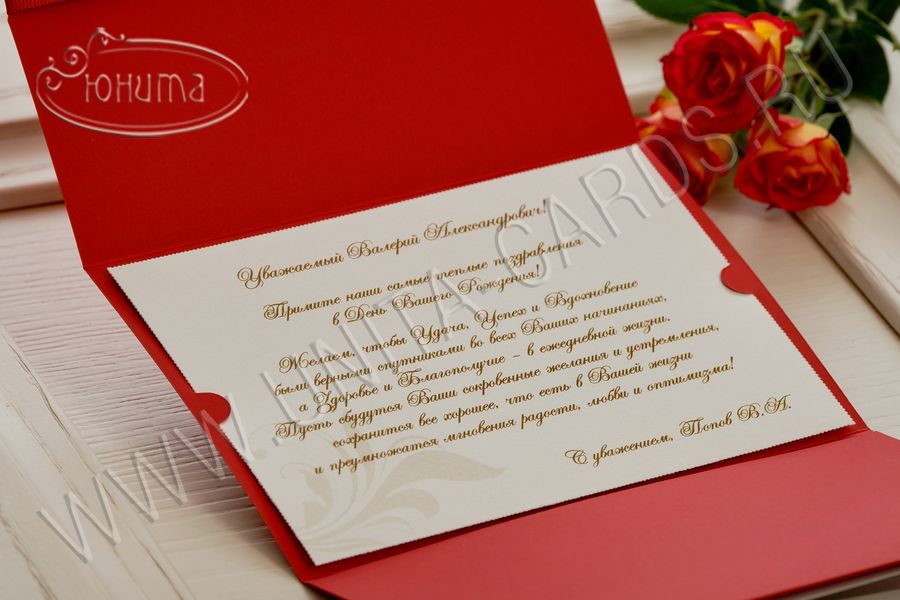 Юнита
Уважаемый Валерий Александрович!
Примите наши самые теплые поздравления
в День Вашего Рождения!
Желаем, чтобы Удача, Успех и Вдохновение
были верными спутниками во всех Ваших начинаниях,
а Здоровье и Благополучие – в ежедневной жизни.
Пусть сбудутся Ваши сокровенные желания и устремления,
сохранится все хорошее, что есть в Вашей жизни
и преумножатся мгновения радости, любви и оптимизма!
С уважением, Попов В.А.
WWW.UNITA-CARDS.RU